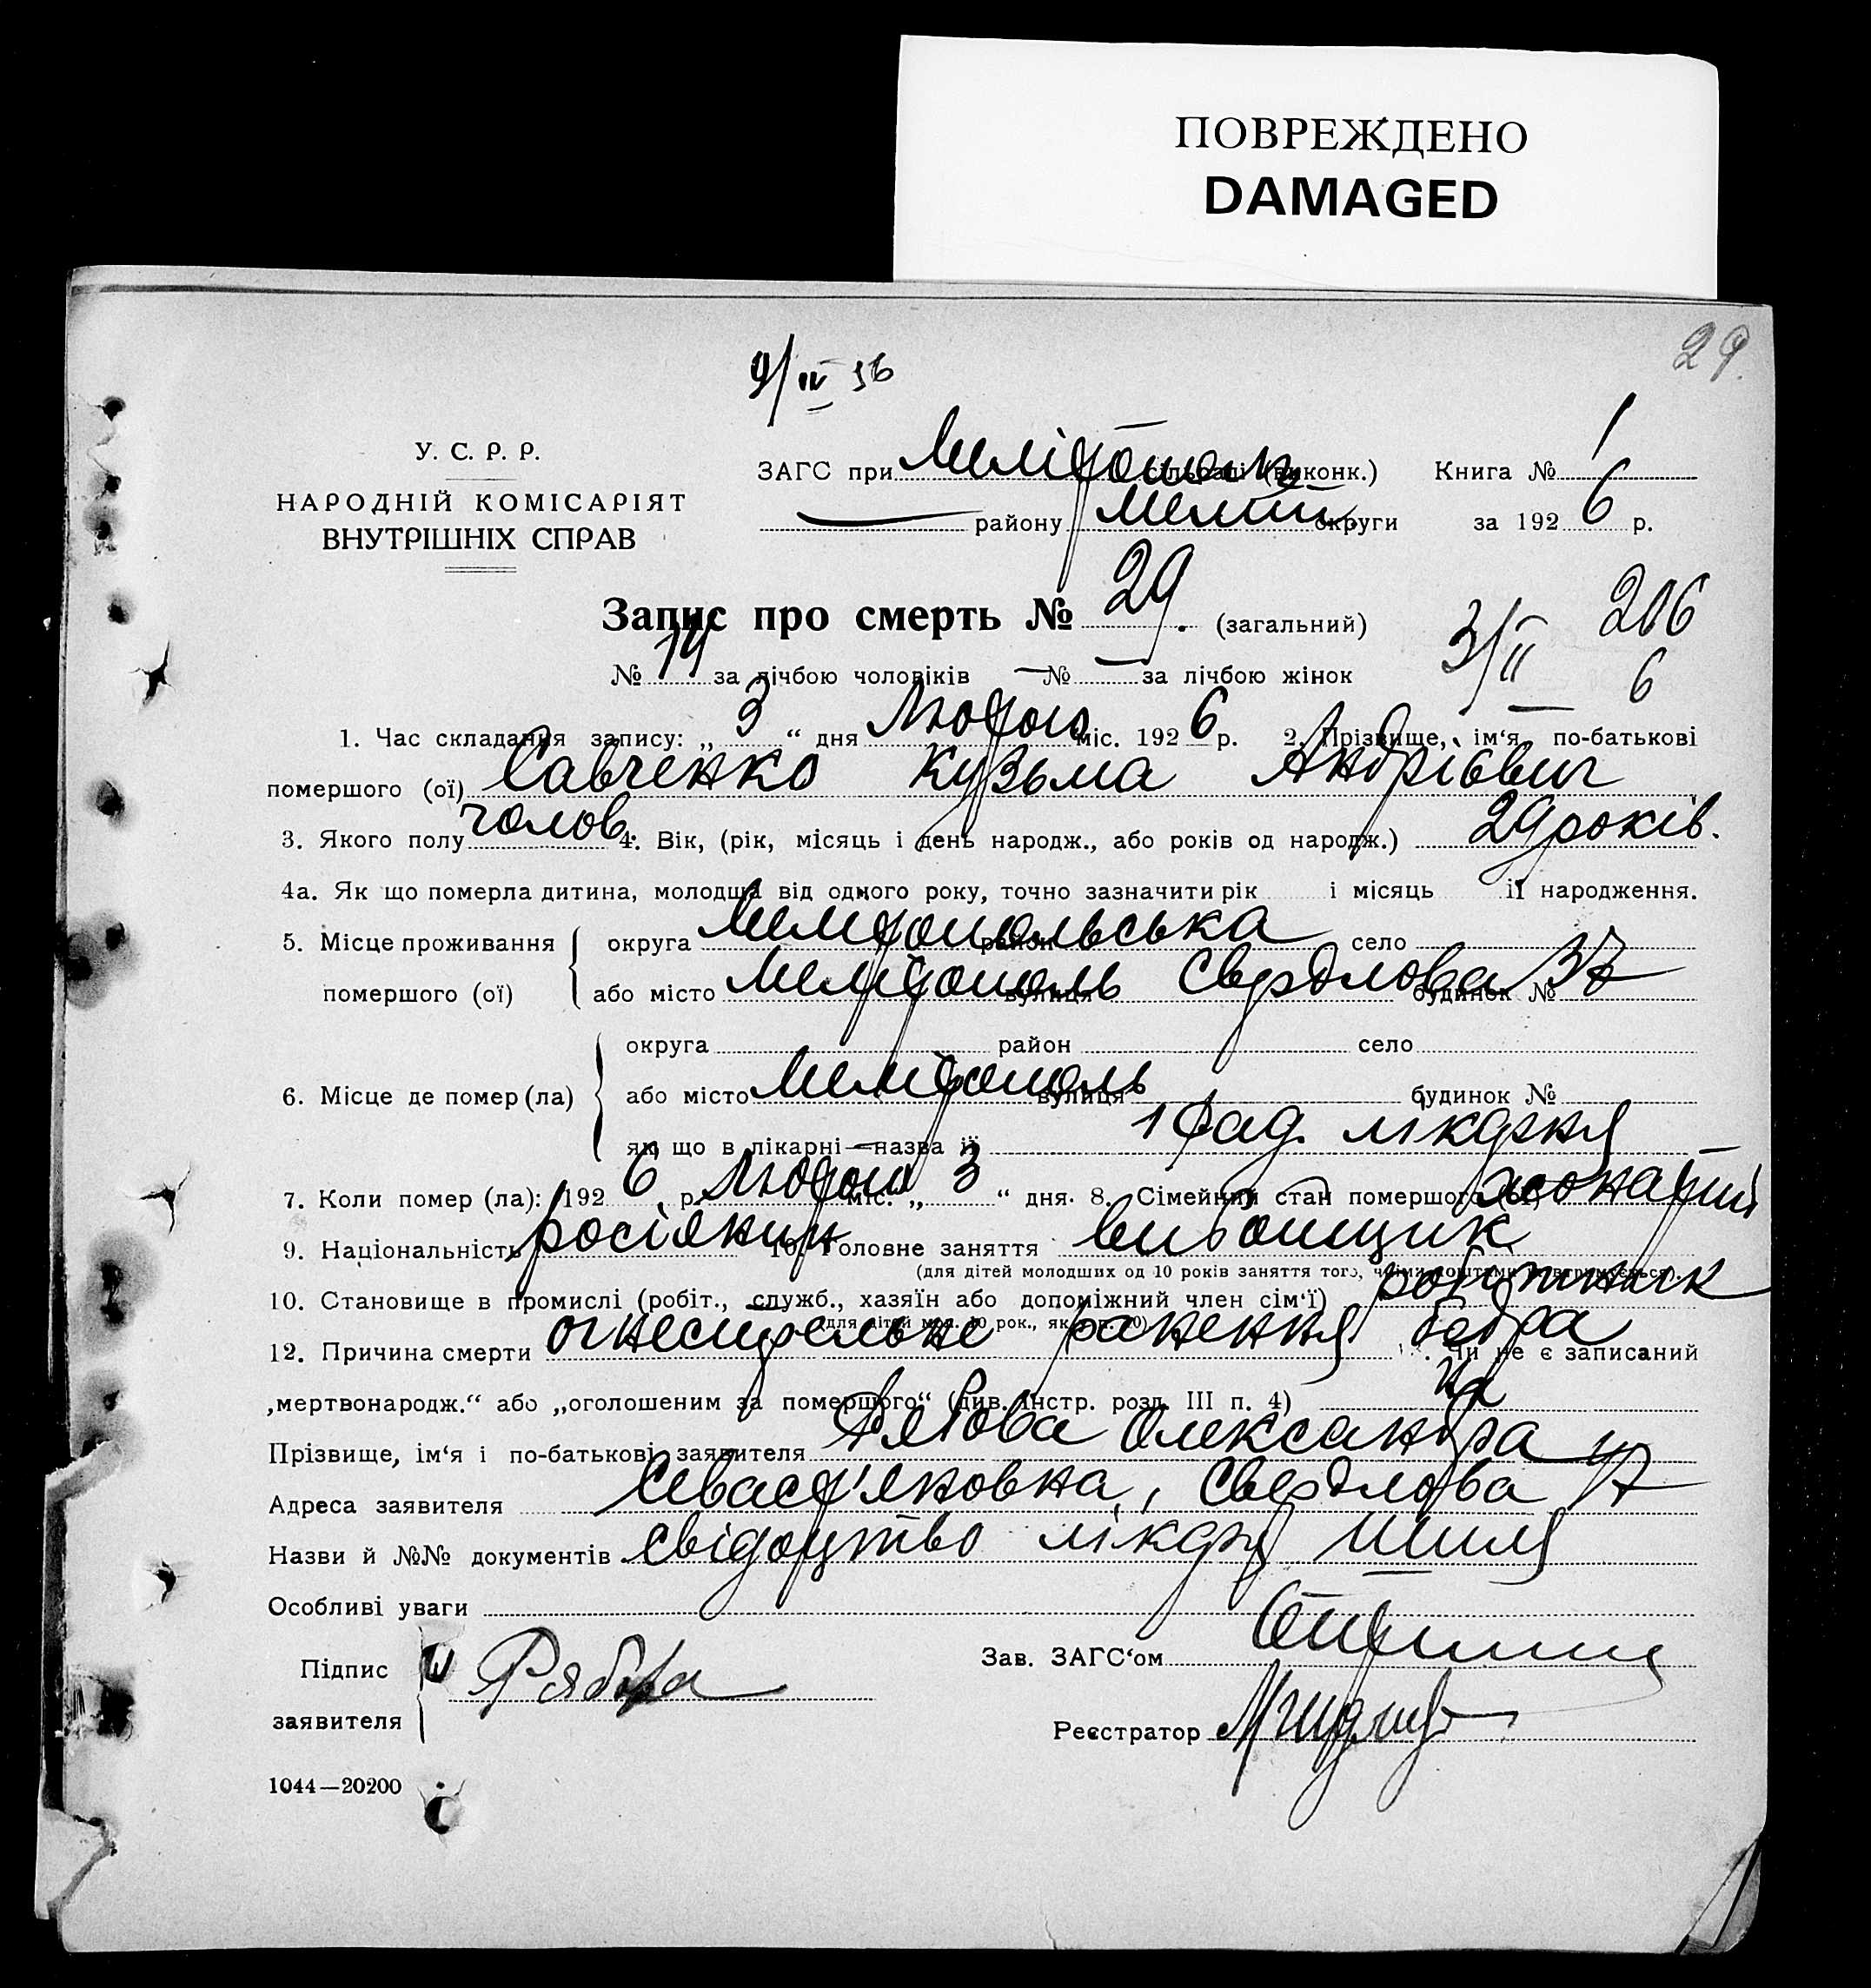 ПОВРЕЖДЕНО
DAMAGED
29.
9/IV 36
У. С. Р. Р.
НАРОДНІЙ КОМІСАРІЯТ
ВНУТРІШНІХ СПРАВ
ЗАГС при Мелітопольск сільраді (виконк.) Книга № 1
— району Меліт. округи за 192 6 р.
Запис про смерть № 29. (загальний)
206
3/II 6
№ 14 за лічбою чоловіків — № — за лічбою жінок
1. Час складання запису: „ 3 “ дня Лютого міс. 192 6 р. 2. Прізвище, ім‘я, по-батькові
помершого (ої) Савченко Кузьма Андрієвич
3. Якого полу чолов. 4. Вік, (рік, місяць і день народж., або років од народж.) 29 років.
4а. Як що померла дитина, молодша від одного року, точно зазначити рік і місяць її народження.
5. Місце проживання округа Мелітопольська район село
помершого (ої) або місто Мелітополь вулиця Свердлова будинок № 37
округа район село
6. Місце де помер (ла) або місто Мелітополь вулиця будинок №
як що в лікарні — назва її 1 рад. лікарня
7. Коли помер (ла): 192 6 р. Лютого міс. „ 3 “ дня. 8. Сімейний стан помершого (ої) жонатий
9. Національність росіянин 10. Головне заняття
(для дітей молодших од 10 років заняття того, чиїми коштами утримується.
10. Становище в промислі (робіт., служб., хазяїн або допоміжний член сім‘ї) робітник
(для дітей мол. 10 рок., як в п. 10)
12. Причина смерти огнестрельне ранення бедра Чи не є записаний
„мертвонародж.“ або „оголошеним за помершого“ (див. Інстр. розд. III п. 4) ні
Прізвище, ім‘я і по-батькові заявителя Олександра
Адреса заявителя Севаст'яновна, Свердлова 47
Назви й №№ документів свідоцтво лікаря
Особливі уваги
Підпис заявителя Рябова
Зав. ЗАГС‘ом
Реєстратор
1044—20200